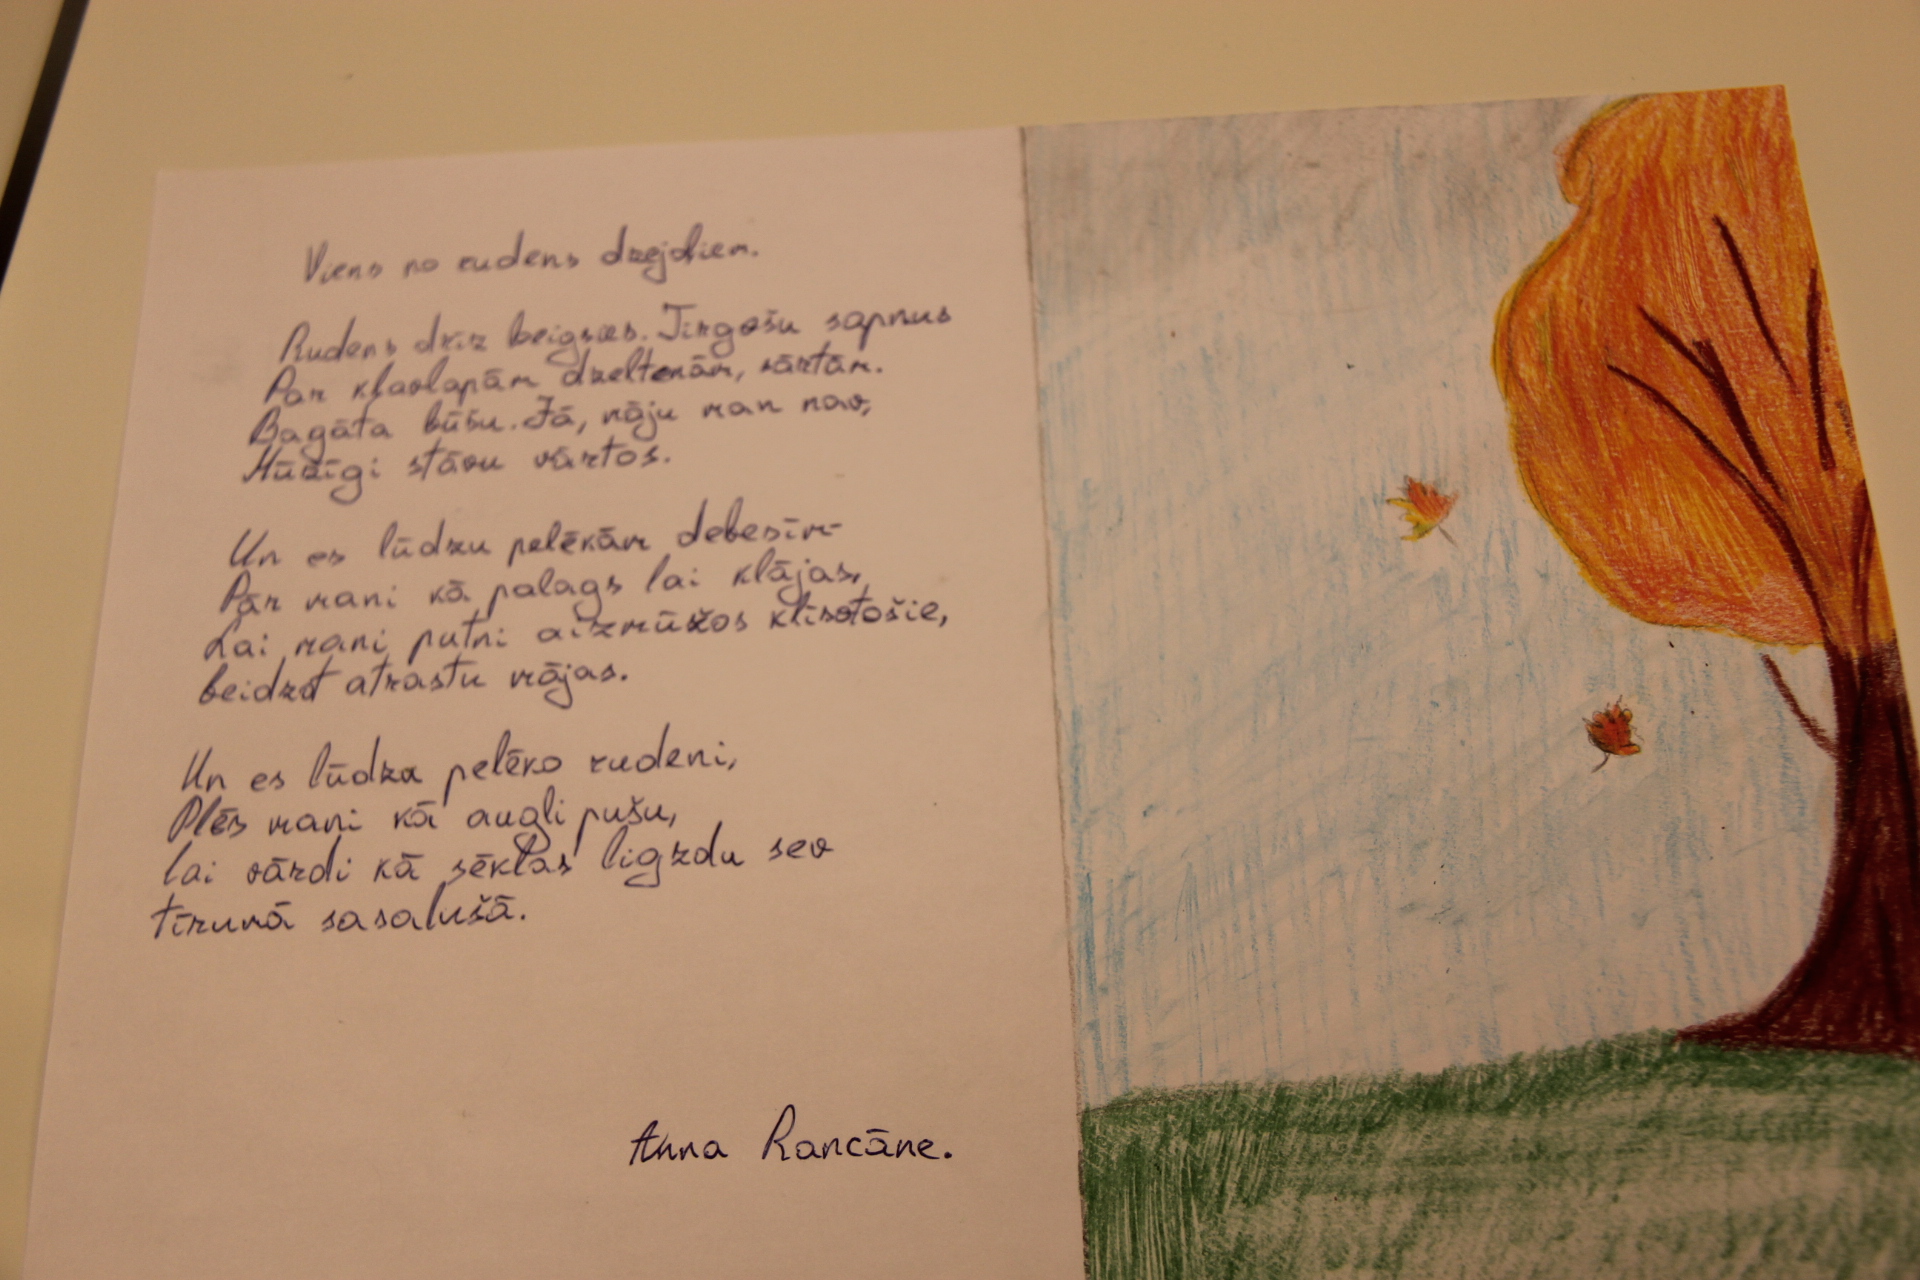 Viens no rudens dzejoļiem.
Rudens drīz beigsies. Tirgošu sapņus
Par kļavlapām dzeltenām, sārtām.
Bagāta būšu. Jā, māju man nav,
Mūžīgi stāvu vārtos.
Un es lūdzu pelēkām debesīm-
Pār mani kā palags lai klājas,
Lai mani putni aizmūžos klīstošie,
beidzot atrastu mājas.
Un es lūdzu pelēko rudeni,
Plēs mani kā augli pušu,
lai vārdi kā sēklas ligzdu sev
tīrumā sasalušā.
Anna Rancāne.